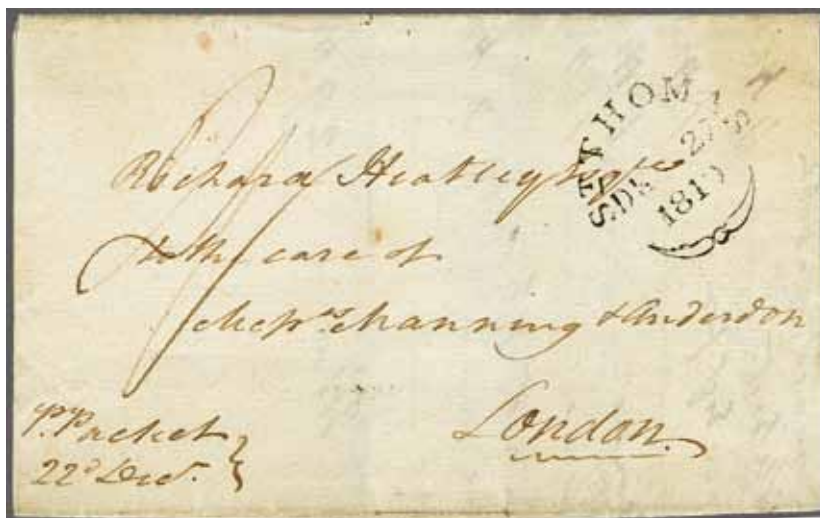 ST THOMAS
DE 22
1810
Richard Heatley Esqre
to the care of
Messrs Manning & Anderdon
London.
Pr Packet
22d Decr.